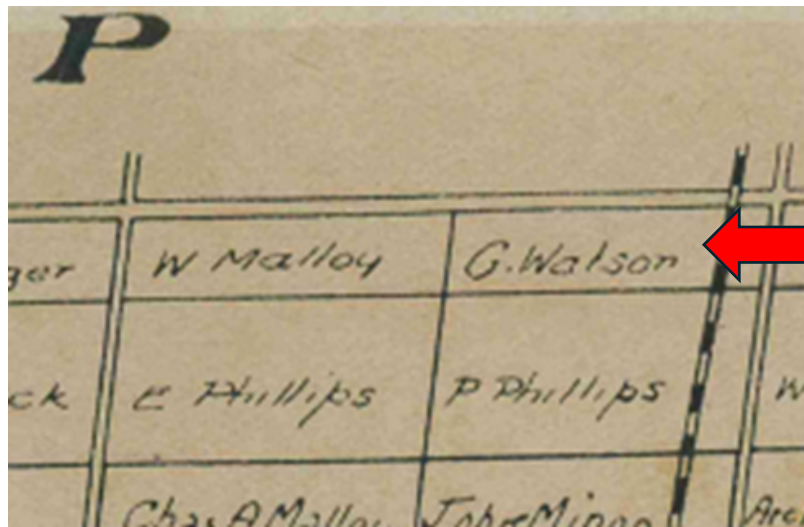 P
W Malloy G. Watson
E Phillips P Phillips
Chas A Malloy John Minno